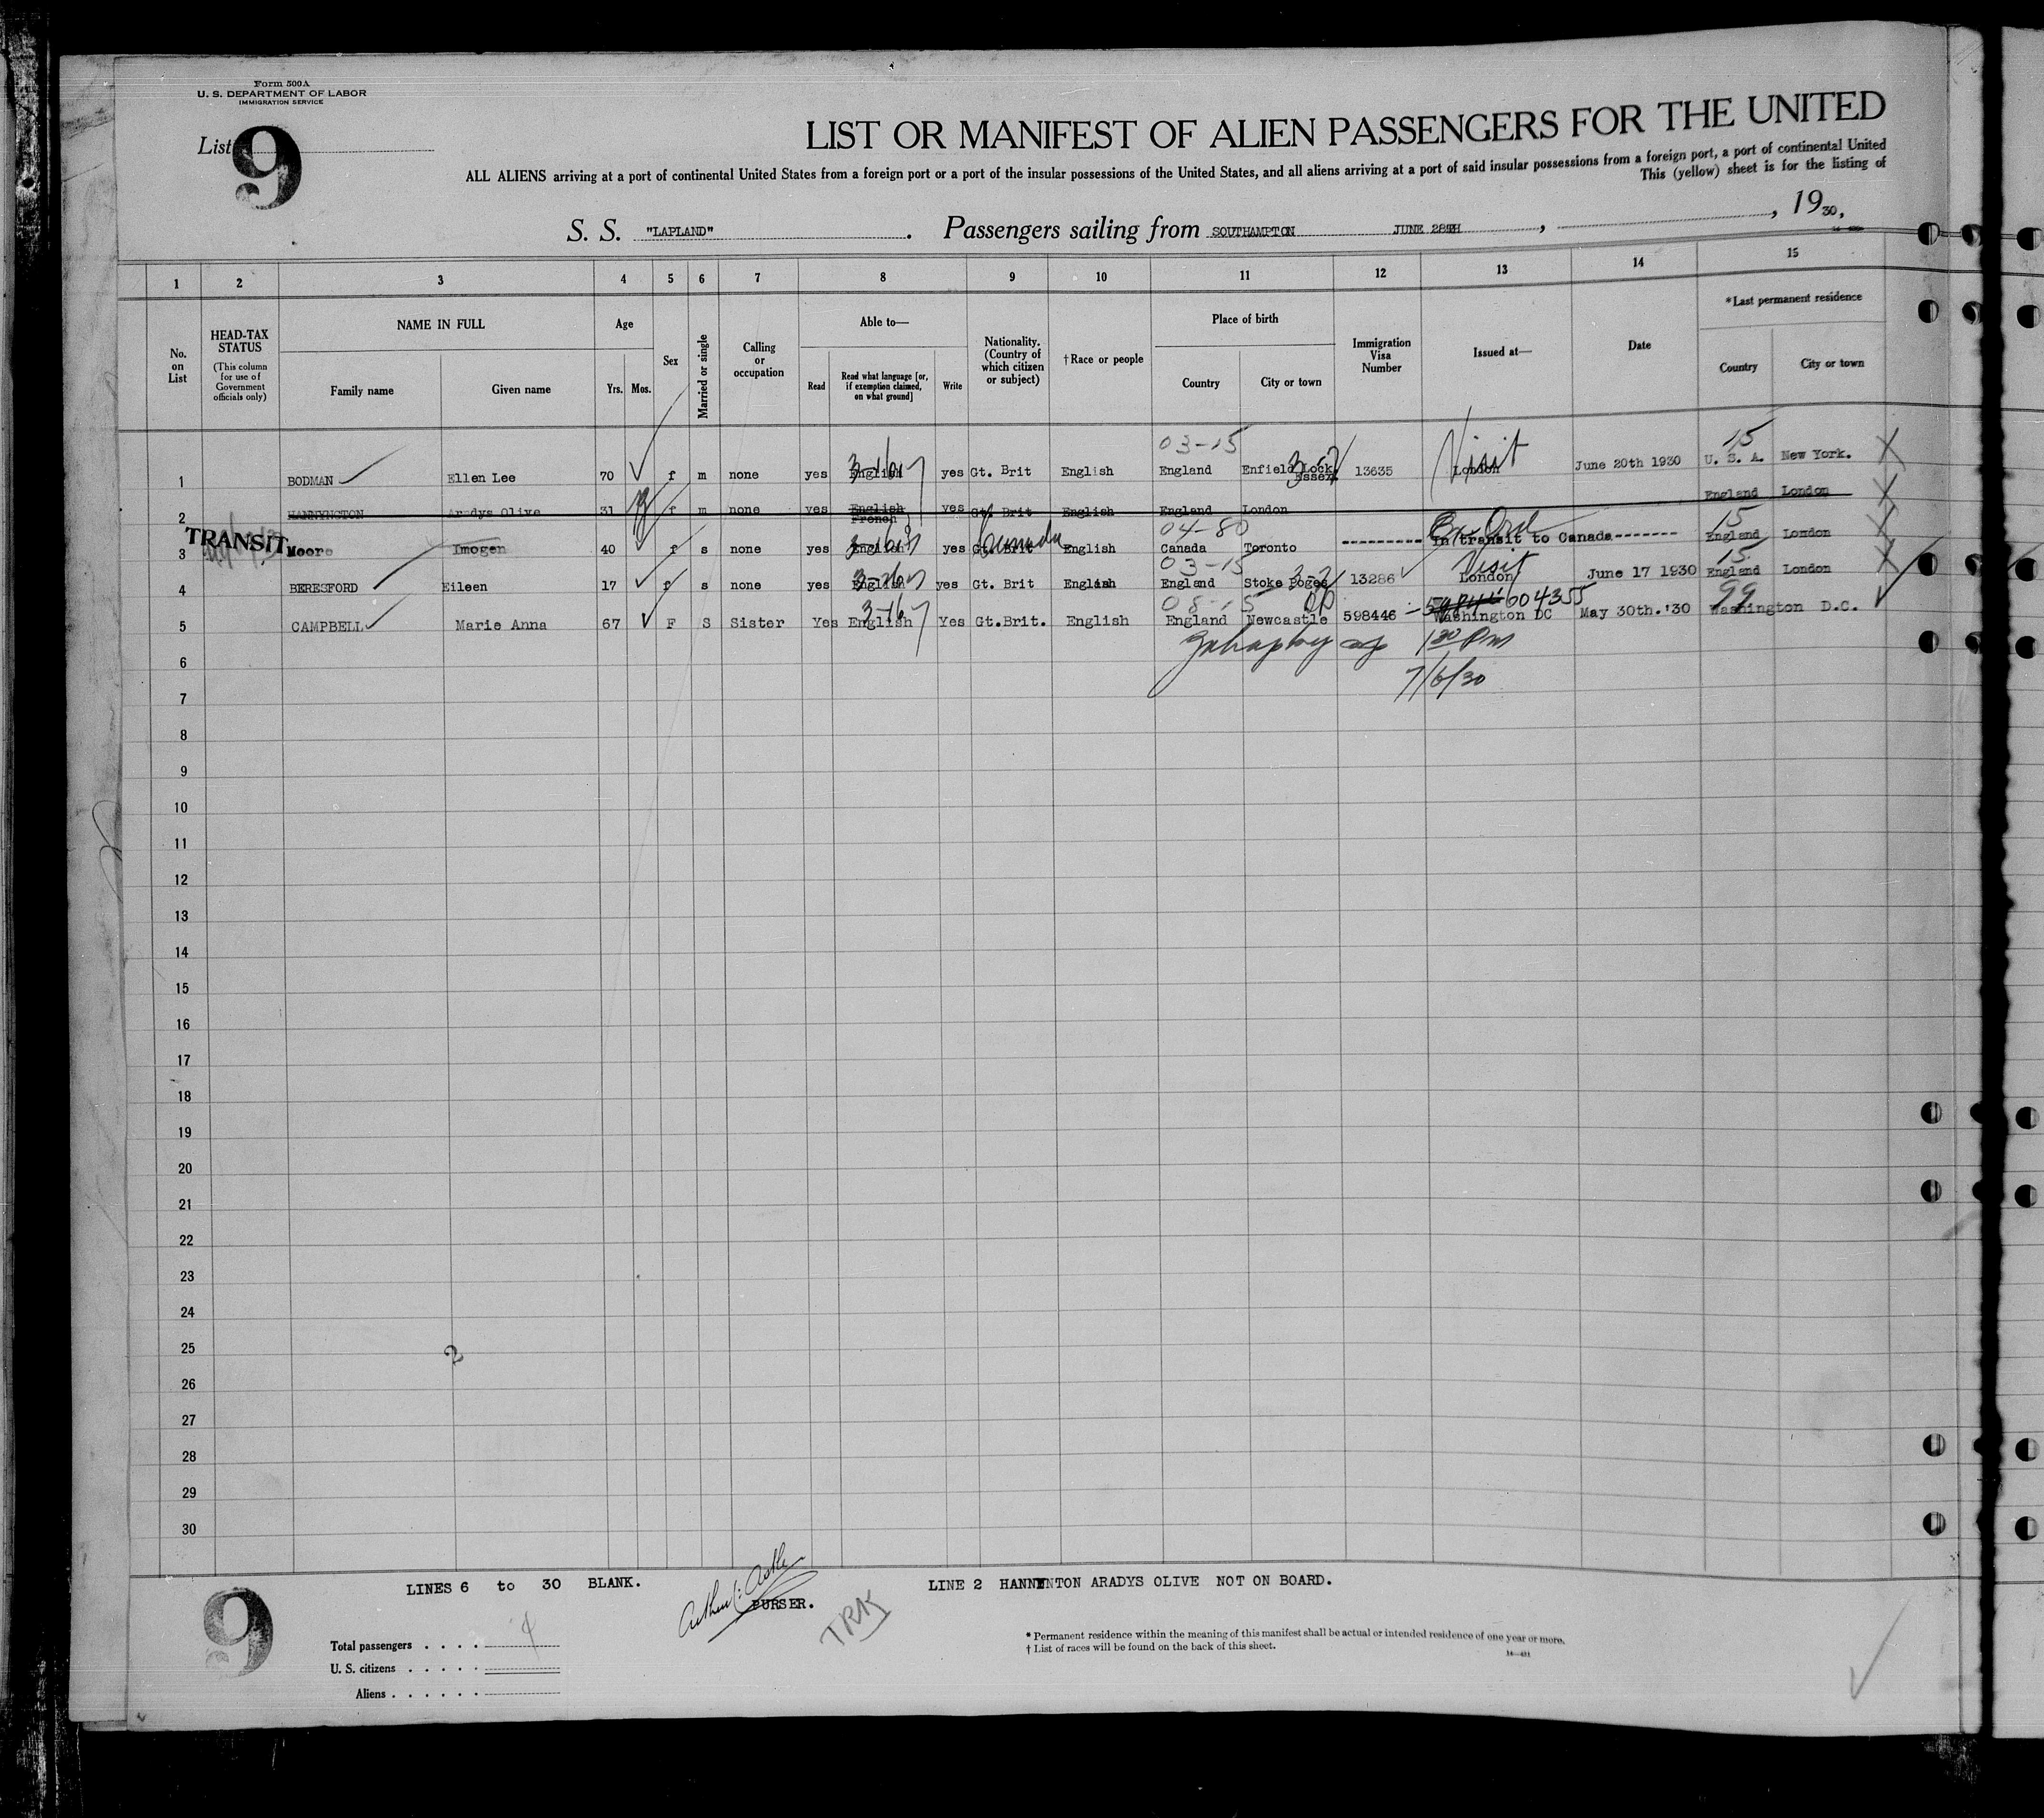 Form 500A
U. S. DEPARTMENT OF LABOR
IMMIGRATION SERVICE
List 9
LIST OR MANIFEST OF ALIEN PASSENGERS FOR THE UNITED
ALL ALIENS arriving at a port of continental United States from a foreign port or a port of the insular possessions of the United States, and all aliens arriving at a port of said insular possessions from a foreign port, a port of continental United
This (yellow) sheet is for the listing of
S. S. "LAPLAND". Passengers sailing from SOUTHAMPTON JUNE 28TH, , 1930,
1 2 3 4 5 6 7 8 9 10 11 12 13 14 15
No. on List
HEAD-TAX STATUS (This column for use of Government officials only)
NAME IN FULL
Family name Given name
Age
Yrs. Mos.
Sex
Married or single
Calling or occupation
Able to—
Read Read what language [or, if exemption claimed, on what ground] Write
Nationality. (Country of which citizen or subject)
†Race or people
Place of birth
Country City or town
Immigration Visa Number
Issued at—
Date
*Last permanent residence
Country City or town
03-15 Visit 15
1 BODMAN Ellen Lee 70 f m none yes English 3-167 yes Gt. Brit English England Enfield Lock Essex 13635 London June 20th 1930 U. S. A. New York. X
2 HANNYNGTON Aradys Olive 31 f m none yes English French yes Gt. Brit English England London England London X
04-80 15
TRANSIT
3 Moore Imogen 40 f s none yes English yes Gt. Brit Canada English Canada Toronto --------- In transit to Canada------- England London X
03-15 Visit 15
4 BERESFORD Eileen 17 f s none yes English yes Gt. Brit English England Stoke Poges 13286 London June 17 1930 England London
08-15 004355 99
5 CAMPBELL Marie Anna 67 F S Sister Yes English 3-167 Yes Gt.Brit. English England Newcastle 598446 Washington DC May 30th.'30 Washington D.C.
1 30 Pm
6
7/6/30
7
8
9
10
11
12
13
14
15
16
17
18
19
20
21
22
23
24
25
2
26
27
28
29
30
LINES 6 to 30 BLANK.
PURSER.
LINE 2 HANNYNTON ARADYS OLIVE NOT ON BOARD.
9
TRK
Total passengers . . . . 4
U. S. citizens . . . . .
Aliens . . . . . .
* Permanent residence within the meaning of this manifest shall be actual or intended residence of one year or more.
† List of races will be found on the back of this sheet.